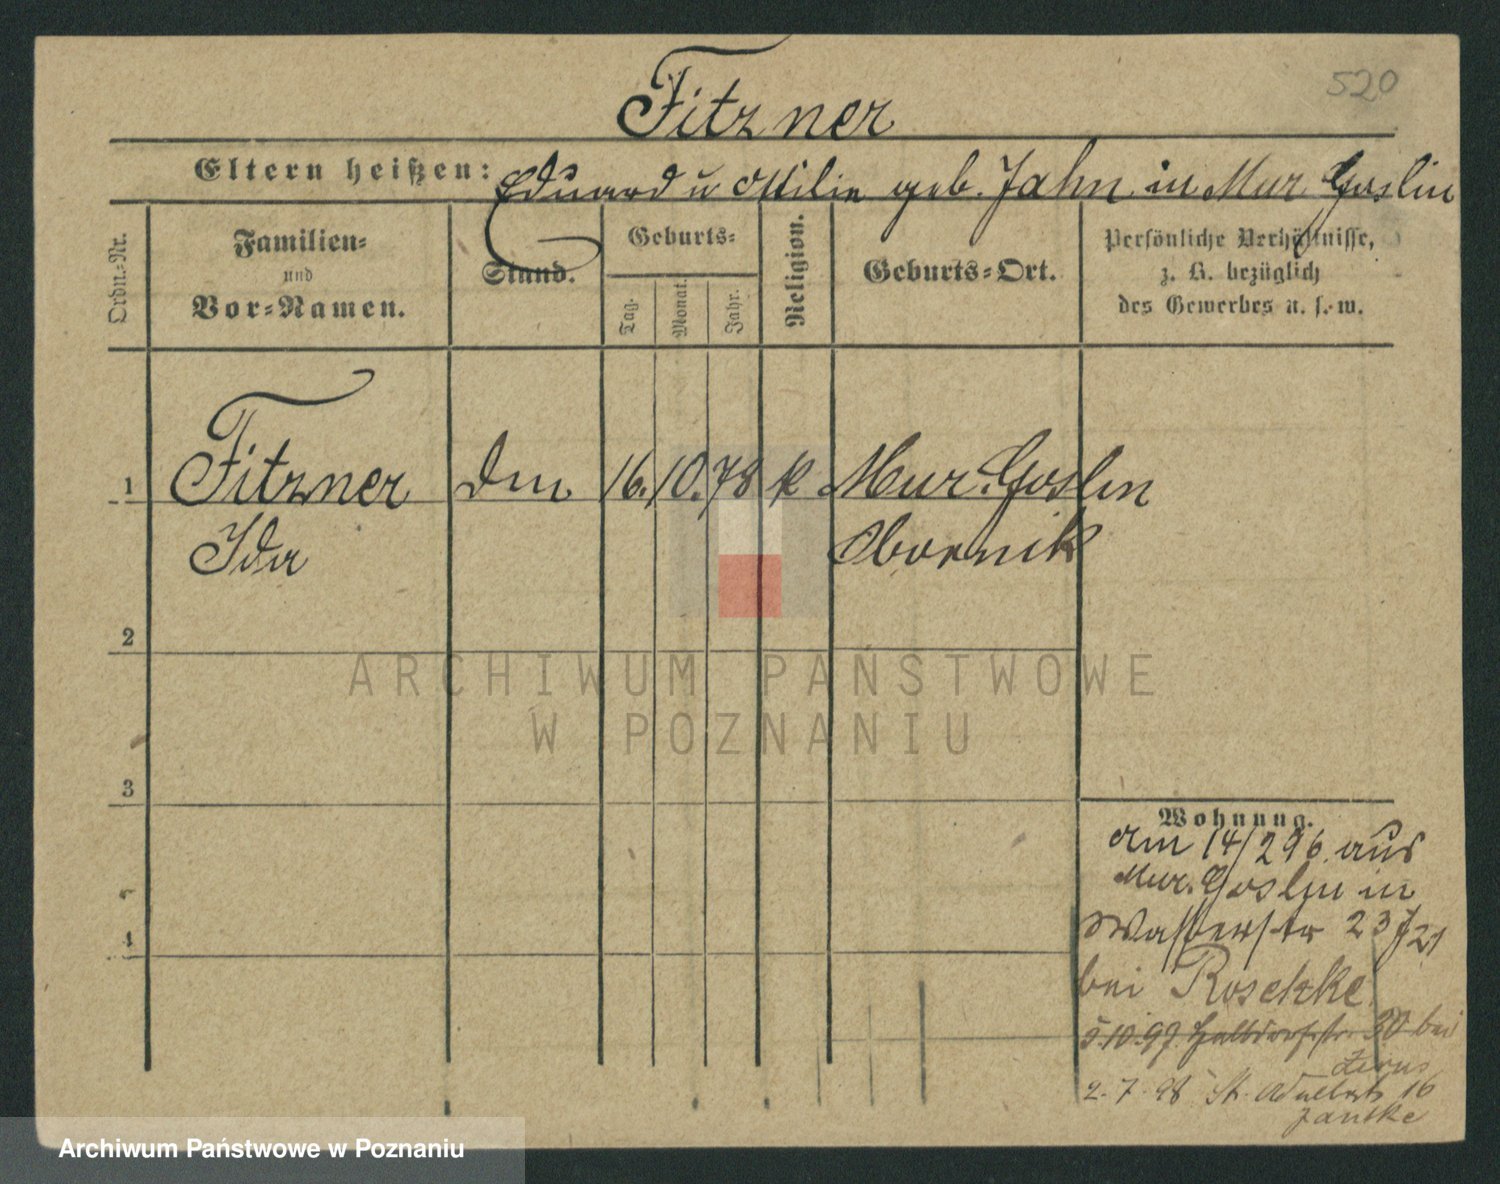 520
Fitzner
Eltern heißen: Eduard u Ottilie geb. Jahn in Mur. Goslin
Ordn.-Nr.
Familien-
und
Vor-Namen.
Stand.
Geburts-
Tag.
Monat.
Jahr.
Religion.
Geburts-Ort.
Persönliche Verhältnisse,
z. B. bezüglich
des Gewerbes u. s. w.
1 Fitzner
Ida
16. 10. 78 k Mur. Goslin
Obornik
2
3
4
Wohnung.
am 14/2 96. aus
Mur. Goslin in
Wasserstr 23
bei Roschke
5.10.97 Halbdorfstr 30 bei
2.7.98 St. Adalbert 16
Jantke
ARCHIWUM PAŃSTWOWE
W POZNANIU
Archiwum Państwowe w Poznaniu